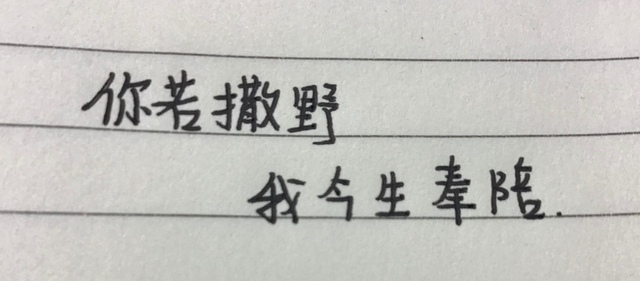 你若撒野
我今生奉陪.